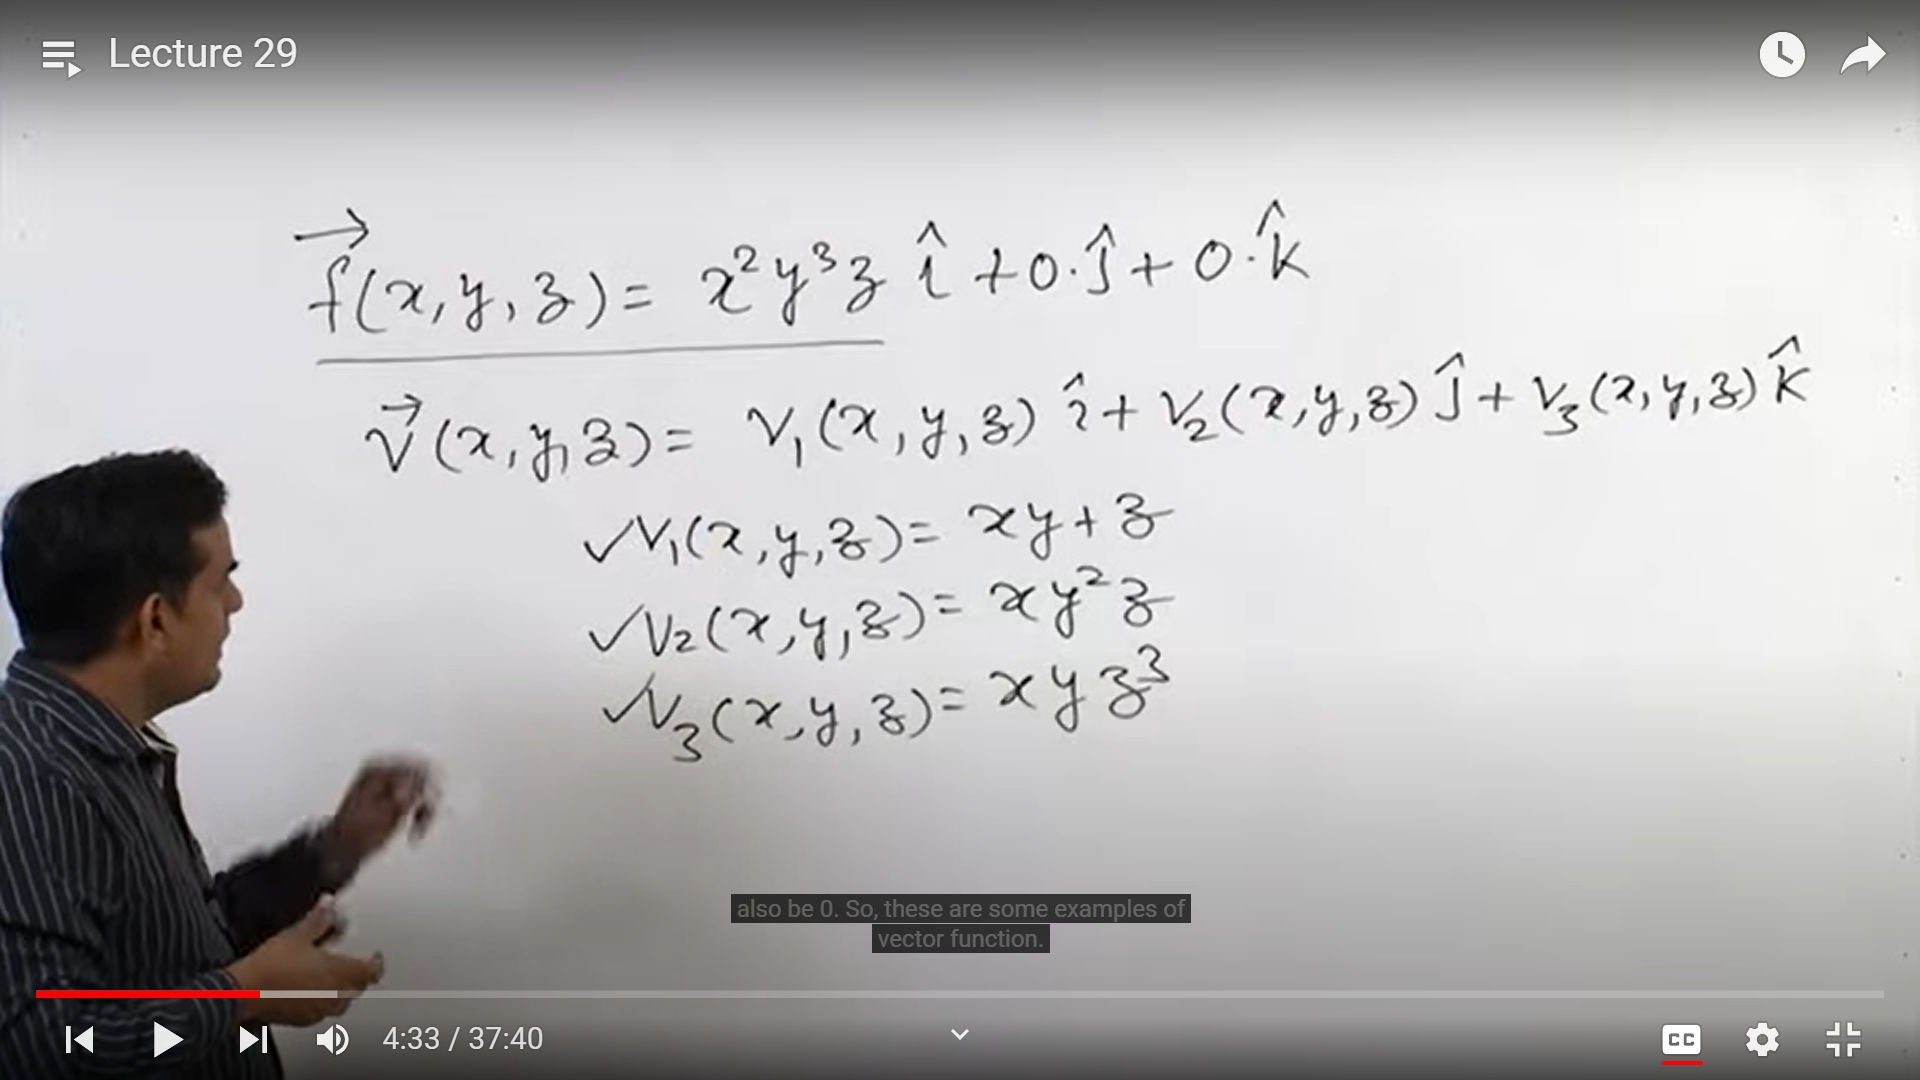 Lecture 29
f⃗(x, y, z) = x²y³z î + 0·ĵ + 0·k̂
V⃗(x, y, z) = V₁(x, y, z) î + V₂(x, y, z) ĵ + V₃(x, y, z) k̂
✓V₁(x, y, z) = xy + z
✓V₂(x, y, z) = xy²z
✓V₃(x, y, z) = xyz³
also be 0. So, these are some examples of
vector function.
4:33 / 37:40
CC